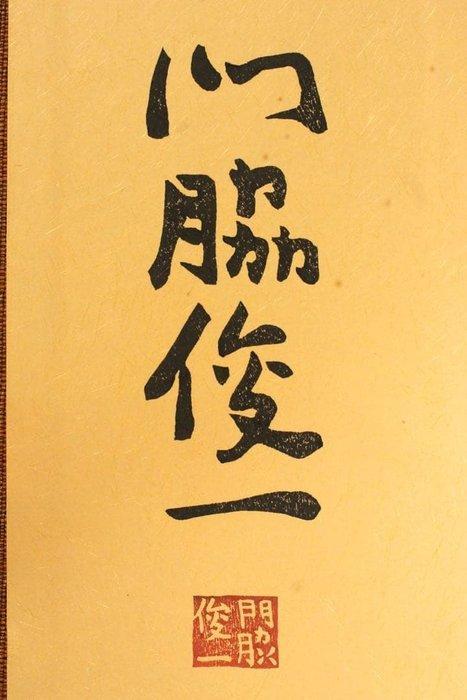 門脇俊一
門脇
俊一